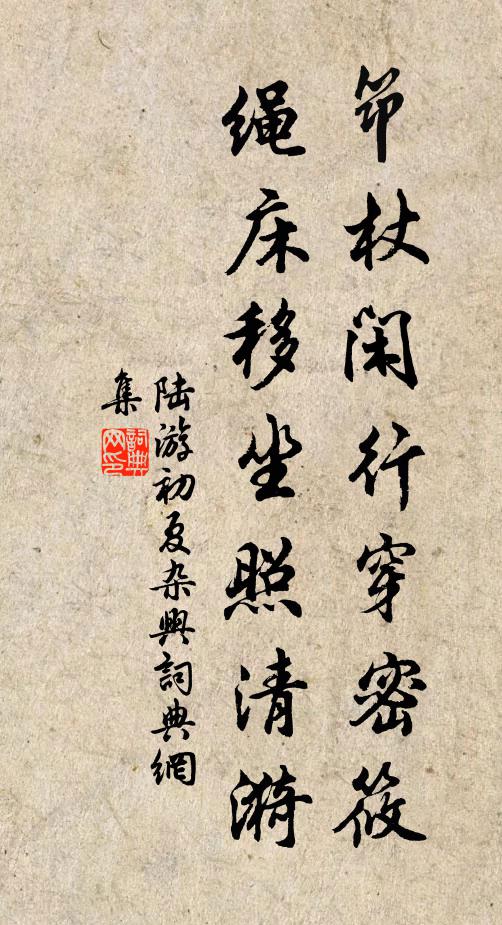 笻杖闲行穿密筱
绳床移坐照清漪
陆游初夏杂兴词典網
集
詞典网印